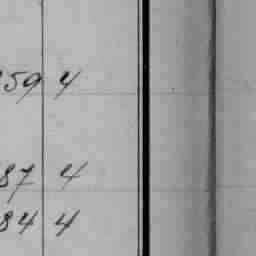 59 4
87 4
84 4